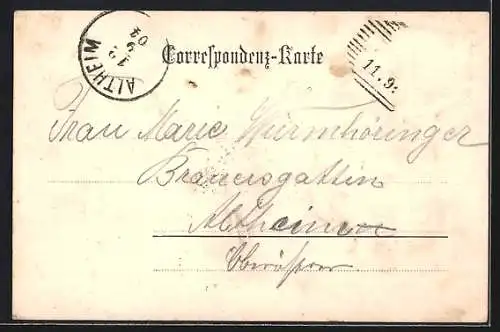 ALTHEIM
12
9
04
Correspondenz-Karte
11.9:
Frau Marie Wurmhöringer
Brauersgattin
Altheim